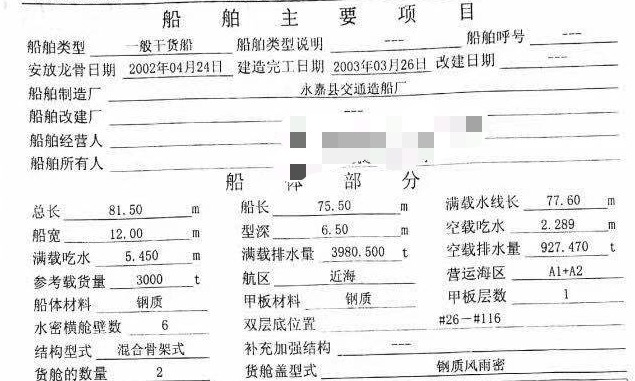 船舶主要项目
船舶类型 一般干货船 船舶类型说明 --- 船舶呼号 ---
安放龙骨日期 2002年04月24日 建造完工日期 2003年03月26日 改建日期 ---
船舶制造厂 永嘉县交通造船厂
船舶改建厂 ---
船舶经营人
船舶所有人
船体部分
总长 81.50 m 船长 75.50 m 满载水线长 77.60 m
船宽 12.00 m 型深 6.50 m 空载吃水 2.289 m
满载吃水 5.450 m 满载排水量 3980.500 t 空载排水量 927.470 t
参考载货量 3000 t 航区 近海 营运海区 A1+A2
船体材料 钢质 甲板材料 钢质 甲板层数 1
水密横舱壁数 6 双层底位置 #26-#116
结构型式 混合骨架式 补充加强结构 ---
货舱的数量 2 货舱盖型式 钢质风雨密